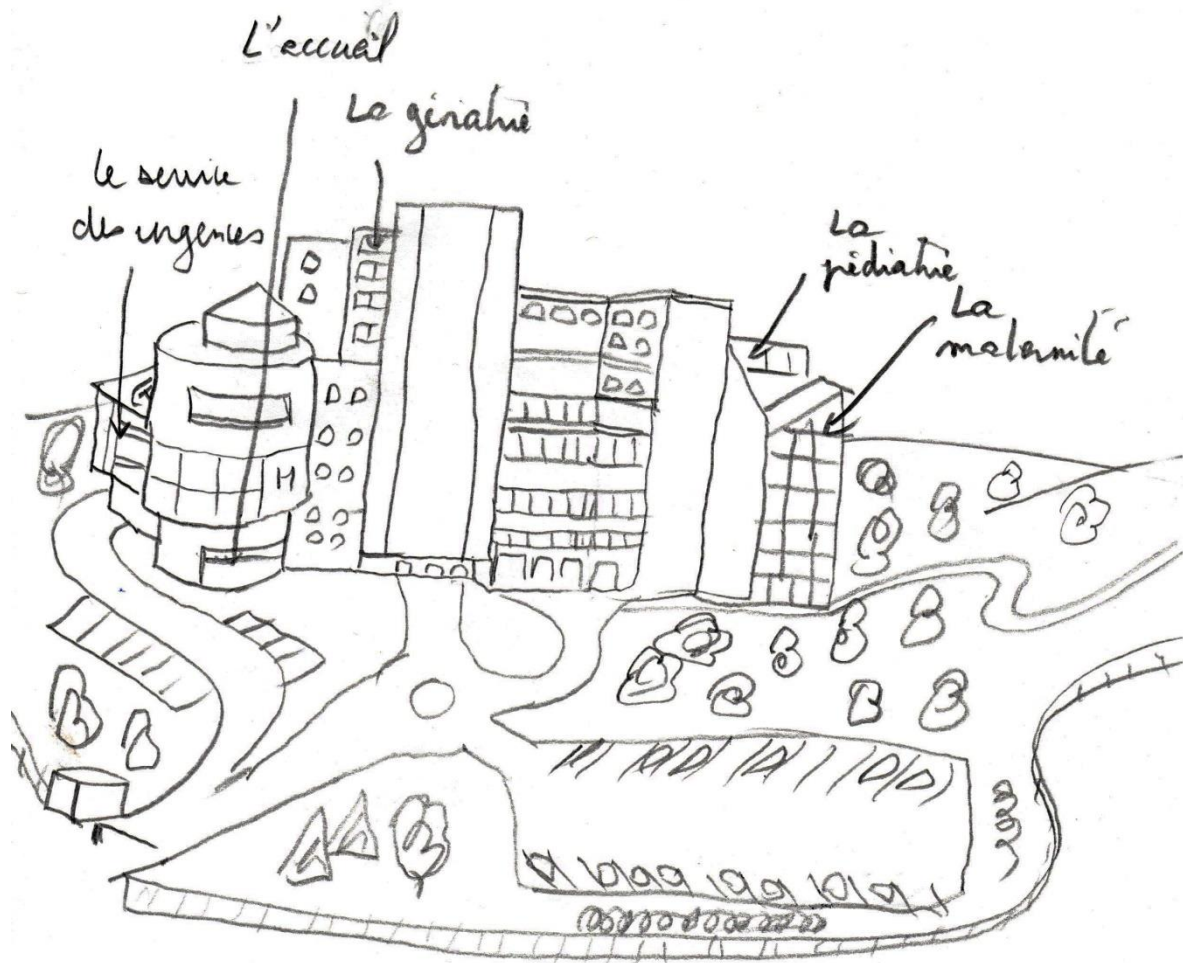 L'accueil
La gériatrie
le service
des urgences
La
pédiatrie
La
maternité
H